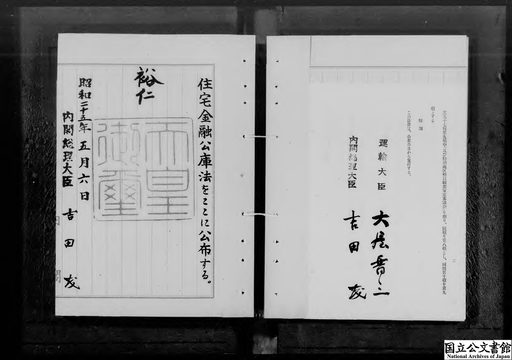 附則
運輸大臣 大屋晋三
内閣総理大臣 吉田茂
住宅金融公庫法をここに公布する。
裕仁
天皇御璽
昭和二十五年五月六日
内閣総理大臣 吉田茂
国立公文書館
National Archives of Japan